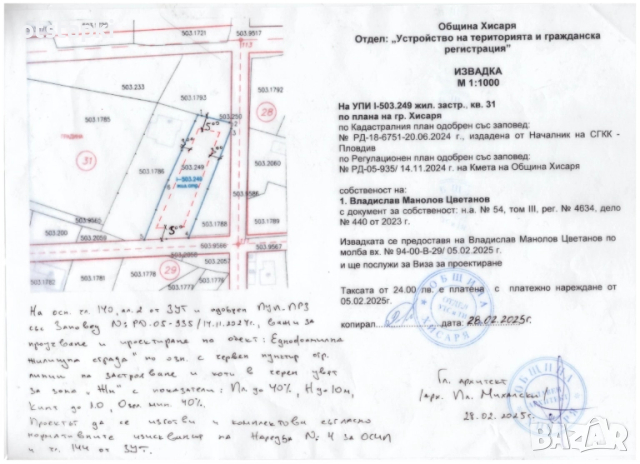 Община Хисаря
Отдел: „Устройство на територията и гражданска
регистрация"
ИЗВАДКА
М 1:1000
На УПИ I-503.249 жил. застр., кв. 31
по плана на гр. Хисаря
по Кадастралния план одобрен със заповед:
№ РД-18-6751-20.06.2024 г., издадена от Началник на СГКК -
Пловдив
по Регулационен план одобрен със заповед:
№ РД-05-935/ 14.11.2024 г. на Кмета на Община Хисаря
собственост на:
1. Владислав Манолов Цветанов
с документ за собственост: н.а. № 54, том III, рег. № 4634, дело
№ 440 от 2023 г.
Извадката се предоставя на Владислав Манолов Цветанов по
молба вх. № 94-00-В-29/ 05.02.2025 г.
и ще послужи за Виза за проектиране
Таксата от 24.00 лв. е платена с платежно нареждане от
05.02.2025г.
копирал дата: 28.02.2025г.
Гл. архитект
/арх. Пл. Михайлски/
28.02.2025г.
503.1731
503.9517
503.233
503.1792
503.250
28
503.1785
31
503.249
I-503.249
жил.стр.
503.1786
503.1787
503.1788
503.2060
503.9586
503.1789
503.9560
503.200
503.2059
503.9566
503.9567
29
503.1778
503.1777
503.1776
503.1771
На осн. чл. 140, ал. 2 от ЗУТ и одобрен ПУП-ПРЗ
със Заповед № РД-05-935/14.11.2024г., важи за
проучване и проектиране на обект: „Еднофамилна
жилищна сграда" по озн. с червен пунктир огр.
линии на застрояване и коти в черен цвят
за зона „Жм" с показатели: Пл. до 40%, Н до 10м,
Кинт до 1.0, Озел. мин. 40%.
Проектът да се изготви и комплектова съгласно
нормативните изисквания на Наредба № 4 за ОСИП
и чл. 144 от ЗУТ.
bazar